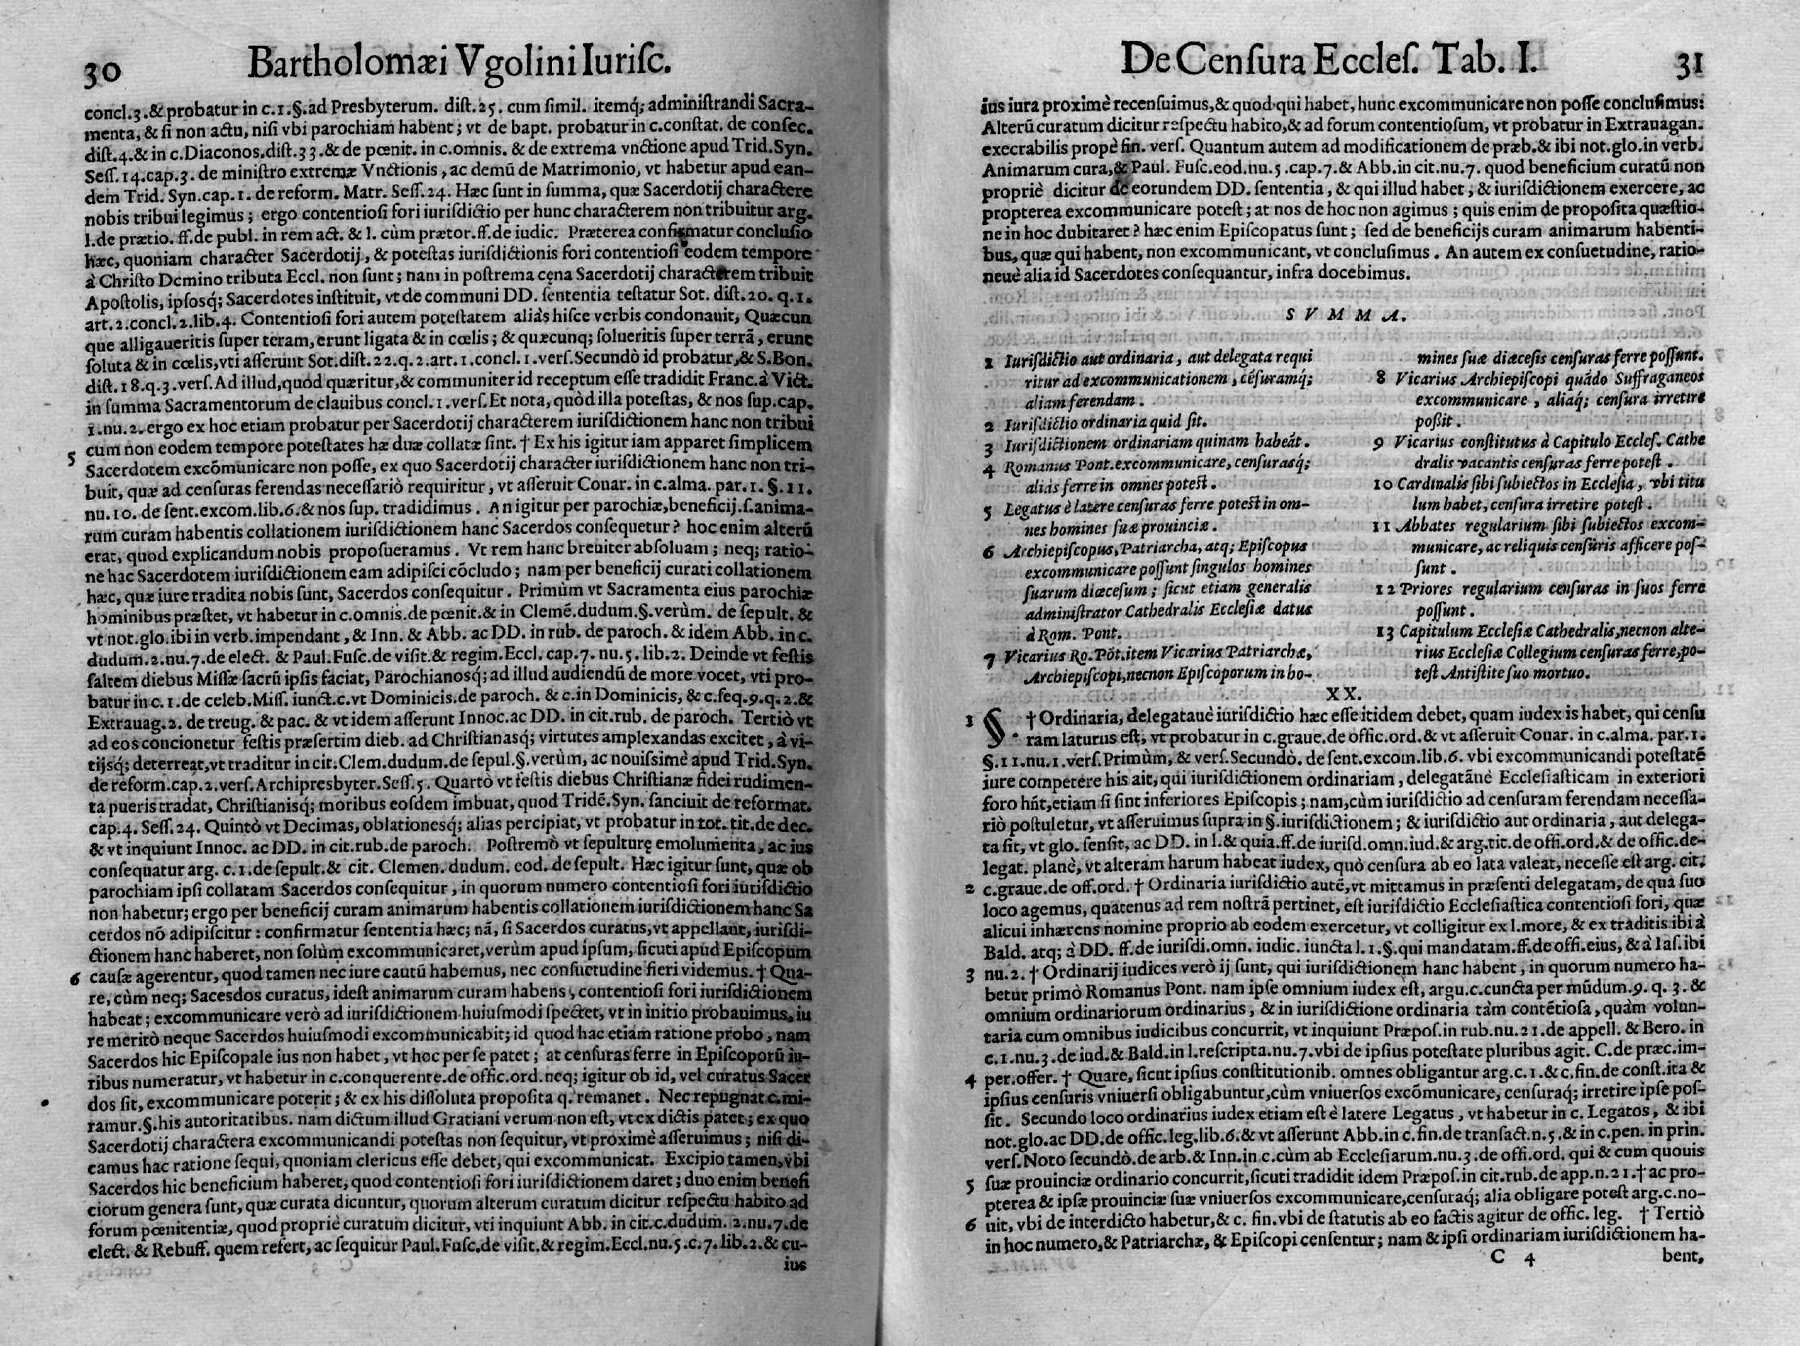 30 Bartholomæi Vgolini Iurisc.
concl.3.& probatur in c.1.§.ad Presbyterum. dist.25. cum simil. itemq; administrandi Sacra-
menta, & si non actu, nisi vbi parochiam habent; vt de bapt. probatur in c.constat. de consec.
dist.4.& in c.Diaconos.dist.33.& de pœnit. in c.omnis. & de extrema vnctione apud Trid.Syn.
Sess.14.cap.3. de ministro extremæ Vnctionis, ac demũ de Matrimonio, vt habetur apud ean-
dem Trid. Syn.cap.1. de reform. Matr. Sess.24. Hæc sunt in summa, quæ Sacerdotij charactere
nobis tribui legimus; ergo contentiosi fori iurisdictio per hunc characterem non tribuitur arg.
l.de prætio. ff.de publ. in rem act. & l. cùm prætor.ff.de iudic. Præterea confirmatur conclusio
hæc, quoniam character Sacerdotij, & potestas iurisdictionis fori contentiosi eodem tempore
à Christo Domino tributa Eccl. non sunt; nam in postrema cęna Sacerdotij characterem tribuit
Apostolis, ipsosq; Sacerdotes instituit, vt de communi DD. sententia testatur Sot. dist.20. q.1.
art.2.concl.2.lib.4. Contentiosi fori autem potestatem aliàs hisce verbis condonauit, Quæcun
que alligaueritis super teram, erunt ligata & in cœlis; & quæcunq; solueritis super terrã, erunt
soluta & in cœlis, vti asserunt Sot.dist.22.q.2.art.1.concl.1.vers.Secundò id probatur,& S.Bon.
dist.18.q.3.vers.Ad illud,quod quæritur,& communiter id receptum esse tradidit Franc.à Vict.
in summa Sacramentorum de clauibus concl.1.vers.Et nota, quòd illa potestas, & nos sup.cap.
1.nu.2.ergo ex hoc etiam probatur per Sacerdotij characterem iurisdictionem hanc non tribui
cum non eodem tempore potestates hæ duæ collatæ sint. † Ex his igitur iam apparet simplicem
5 Sacerdotem excõmunicare non posse, ex quo Sacerdotij character iurisdictionem hanc non tri-
buit, quæ ad censuras ferendas necessariò requiritur, vt asseruit Couar. in c.alma. par.1. §.11.
nu.10. de sent.excom.lib.6.& nos sup. tradidimus. An igitur per parochiæ,beneficij.s.anima-
rum curam habentis collationem iurisdictionem hanc Sacerdos consequetur? hoc enim alterũ
erat, quod explicandum nobis proposueramus. Vt rem hanc breuiter absoluam; neq; ratio-
ne hac Sacerdotem iurisdictionem eam adipisci cõcludo; nam per beneficij curati collationem
hæc, quæ iure tradita nobis sunt, Sacerdos consequitur. Primùm vt Sacramenta eius parochiæ
hominibus præstet, vt habetur in c.omnis.de pœnit.& in Clemẽ.dudum.§.verùm. de sepult. &
vt not.glo.ibi in verb.impendant, & Inn. & Abb. ac DD. in rub. de paroch. & idem Abb. in c.
dudum.2.nu.7.de elect. & Paul.Fusc.de visit.& regim.Eccl. cap.7. nu.5. lib.2. Deinde vt festis
saltem diebus Missæ sacrũ ipsis faciat, Parochianosq; ad illud audiendũ de more vocet, vti pro-
batur in c.1.de celeb.Miss. iunct.c.vt Dominicis.de paroch. & c.in Dominicis, & c.seq.9.q.2.&
Extrauag.2. de treug. & pac. & vt idem asserunt Innoc.ac DD. in cit.rub. de paroch. Tertiò vt
ad eos concionetur festis præsertim dieb. ad Christianasq; virtutes amplexandas excitet, à vi-
tijsq; deterreat,vt traditur in cit.Clem.dudum.de sepul.§.verùm, ac nouissimè apud Trid.Syn.
de reform.cap.2.vers.Archipresbyter.Sess.5. Quartò vt festis diebus Christianæ fidei rudimen-
ta pueris tradat, Christianisq; moribus eosdem imbuat, quod Tridẽ.Syn. sanciuit de reformat.
cap.4. Sess.24. Quintò vt Decimas, oblationesq; alias percipiat, vt probatur in tot. tit.de dec.
& vt inquiunt Innoc. ac DD. in cit.rub.de paroch. Postremò vt sepulturę emolumenta, ac ius
consequatur arg. c.1.de sepult.& cit. Clemen. dudum. eod. de sepult. Hæc igitur sunt, quæ ob
parochiam ipsi collatam Sacerdos consequitur, in quorum numero contentiosi fori iurisdictio
non habetur; ergo per beneficij curam animarum habentis collationem iurisdictionem hanc Sa
cerdos nõ adipiscitur: confirmatur sententia hæc; nã, si Sacerdos curatus,vt appellant, iurisdi-
ctionem hanc haberet, non solùm excommunicaret,verùm apud ipsum, sicuti apud Episcopum
6 causæ agerentur, quod tamen nec iure cautũ habemus, nec consuetudine fieri videmus. † Qua-
re, cùm neq; Sacesdos curatus, idest animarum curam habens, contentiosi fori iurisdictionem
habeat; excommunicare verò ad iurisdictionem huiusmodi spectet, vt in initio probauimus, iu
re meritò neque Sacerdos huiusmodi excommunicabit; id quod hac etiam ratione probo, nam
Sacerdos hic Episcopale ius non habet, vt hoc per se patet; at censuras ferre in Episcoporũ iu-
ribus numeratur, vt habetur in c.conquerente.de offic.ord.neq; igitur ob id, vel curatus Sacer
dos sit, excommunicare poterit; & ex his dissoluta proposita q. remanet. Nec repugnat c.mi-
ramur.§.his autoritatibus. nam dictum illud Gratiani verum non est, vt ex dictis patet; ex quo
Sacerdotij charactera excommunicandi potestas non sequitur, vt proximè asseruimus; nisi di-
camus hac ratione sequi, quoniam clericus esse debet, qui excommunicat. Excipio tamen, vbi
Sacerdos hic beneficium haberet, quod contentiosi fori iurisdictionem daret; duo enim benefi
ciorum genera sunt, quæ curata dicuntur, quorum alterum curatum dicitur respectu habito ad
forum pœnitentiæ, quod propriè curatum dicitur, vti inquiunt Abb. in cit.c.dudum. 2.nu.7.de
elect. & Rebuff. quem refert, ac sequitur Paul.Fusc.de visit.& regim.Eccl.nu.5.c.7. lib.2.& cu-
ius
De Censura Eccles. Tab. I. 31
ius iura proximè recensuimus,& quod qui habet, hunc excommunicare non posse conclusimus:
Alterũ curatum dicitur respectu habito,& ad forum contentiosum, vt probatur in Extrauagan.
execrabilis propè fin. vers. Quantum autem ad modificationem de præb.& ibi not.glo.in verb.
Animarum cura,& Paul. Fusc.eod.nu.5.cap.7.& Abb.in cit.nu.7. quod beneficium curatũ non
propriè dicitur de eorundem DD. sententia, & qui illud habet, & iurisdictionem exercere, ac
propterea excommunicare potest; at nos de hoc non agimus; quis enim de proposita quæstio-
ne in hoc dubitaret? hæc enim Episcopatus sunt; sed de beneficijs curam animarum habenti-
bus, quæ qui habent, non excommunicant, vt conclusimus. An autem ex consuetudine, ratio-
neuè alia id Sacerdotes consequantur, infra docebimus.
SVMMA.
1 Iurisdictio aut ordinaria, aut delegata requi
ritur ad excommunicationem, cẽsuramq;
aliam ferendam.
2 Iurisdictio ordinaria quid sit.
3 Iurisdictionem ordinariam quinam habeãt.
4 Romanus Pont.excommunicare, censurasq;
aliàs ferre in omnes potest.
5 Legatus è latere censuras ferre potest in om-
nes homines suæ prouinciæ.
6 Archiepiscopus, Patriarcha, atq; Episcopus
excommunicare possunt singulos homines
suarum diæcesum; sicut etiam generalis
administrator Cathedralis Ecclesiæ datus
à Rom. Pont.
7 Vicarius Ro. Põt.item Vicarius Patriarchæ,
Archiepiscopi, necnon Episcoporum in ho-
mines suæ diæcesis censuras ferre possunt.
8 Vicarius Archiepiscopi quãdo Suffraganeos
excommunicare, aliaq; censura irretire
possit.
9 Vicarius constitutus à Capitulo Eccles. Cathe
dralis vacantis censuras ferre potest.
10 Cardinalis sibi subiectos in Ecclesia, vbi titu
lum habet, censura irretire potest.
11 Abbates regularium sibi subiectos excom-
municare, ac reliquis censuris afficere pos-
sunt.
12 Priores regularium censuras in suos ferre
possunt.
13 Capitulum Ecclesiæ Cathedralis,necnon alte-
rius Ecclesiæ Collegium censuras ferre,po-
test Antistite suo mortuo.
XX.
1 §. † Ordinaria, delegatauè iurisdictio hæc esse itidem debet, quam iudex is habet, qui censu
ram laturus est, vt probatur in c.graue.de offic.ord.& vt asseruit Couar. in c.alma. par.1.
§.11.nu.1.vers.Primùm, & vers.Secundò. de sent.excom.lib.6. vbi excommunicandi potestatẽ
iure competere his ait, qui iurisdictionem ordinariam, delegatãuè Ecclesiasticam in exteriori
foro hñt,etiam si sint inferiores Episcopis; nam,cùm iurisdictio ad censuram ferendam necessa-
riò postuletur, vt asseruimus supra in §.iurisdictionem; & iurisdictio aut ordinaria, aut delega-
ta sit, vt glo. sensit, ac DD. in l.& quia.ff.de iurisd.omn.iud.& arg.tit.de offi.ord.& de offic.de-
legat. planè, vt alteram harum habeat iudex, quò censura ab eo lata valeat, necesse est arg. cit.
2 c.graue.de off.ord. † Ordinaria iurisdictio autẽ,vt mittamus in præsenti delegatam, de qua suo
loco agemus, quatenus ad rem nostrã pertinet, est iurisdictio Ecclesiastica contentiosi fori, quæ
alicui inhærens nomine proprio ab eodem exercetur, vt colligitur ex l.more, & ex traditis ibi à
Bald. atq; à DD. ff.de iurisdi.omn. iudic. iuncta l.1.§.qui mandatam.ff.de offi.eius, & à Ias.ibi
3 nu.2. † Ordinarij iudices verò ij sunt, qui iurisdictionem hanc habent, in quorum numero ha-
betur primò Romanus Pont. nam ipse omnium iudex est, argu.c.cuncta per mũdum.9. q. 3.&
omnium ordinariorum ordinarius, & in iurisdictione ordinaria tàm contẽtiosa, quàm volun-
taria cum omnibus iudicibus concurrit, vt inquiunt Præpos.in rub.nu.21.de appell. & Bero. in
c.1.nu.3.de iud.& Bald.in l.rescripta.nu.7.vbi de ipsius potestate pluribus agit. C.de præc.im-
4 per.offer. † Quare, sicut ipsius constitutionib. omnes obligantur arg.c.1.& c.fin.de const.ita &
ipsius censuris vniuersi obligabuntur,cùm vniuersos excõmunicare, censuraq; irretire ipse pos-
sit. Secundo loco ordinarius iudex etiam est è latere Legatus, vt habetur in c. Legatos, & ibi
not.glo.ac DD.de offic.leg.lib.6.& vt asserunt Abb.in c.fin.de transact.n.5.& in c.pen.in prin.
vers.Noto secundò.de arb.& Inn.in c.cùm ab Ecclesiarum.nu.3.de offi.ord. qui & cum quouis
5 suæ prouinciæ ordinario concurrit,sicuti tradidit idem Præpos.in cit.rub.de app.n.21.† ac pro-
pterea & ipsæ prouinciæ suæ vniuersos excommunicare,censuraq; alia obligare potest arg.c.no-
6 uit, vbi de interdicto habetur,& c. fin.vbi de statutis ab eo factis agitur de offic. leg. † Tertiò
in hoc numero,& Patriarchæ, & Episcopi censentur; nam & ipsi ordinariam iurisdictionem ha-
C 4 bent,